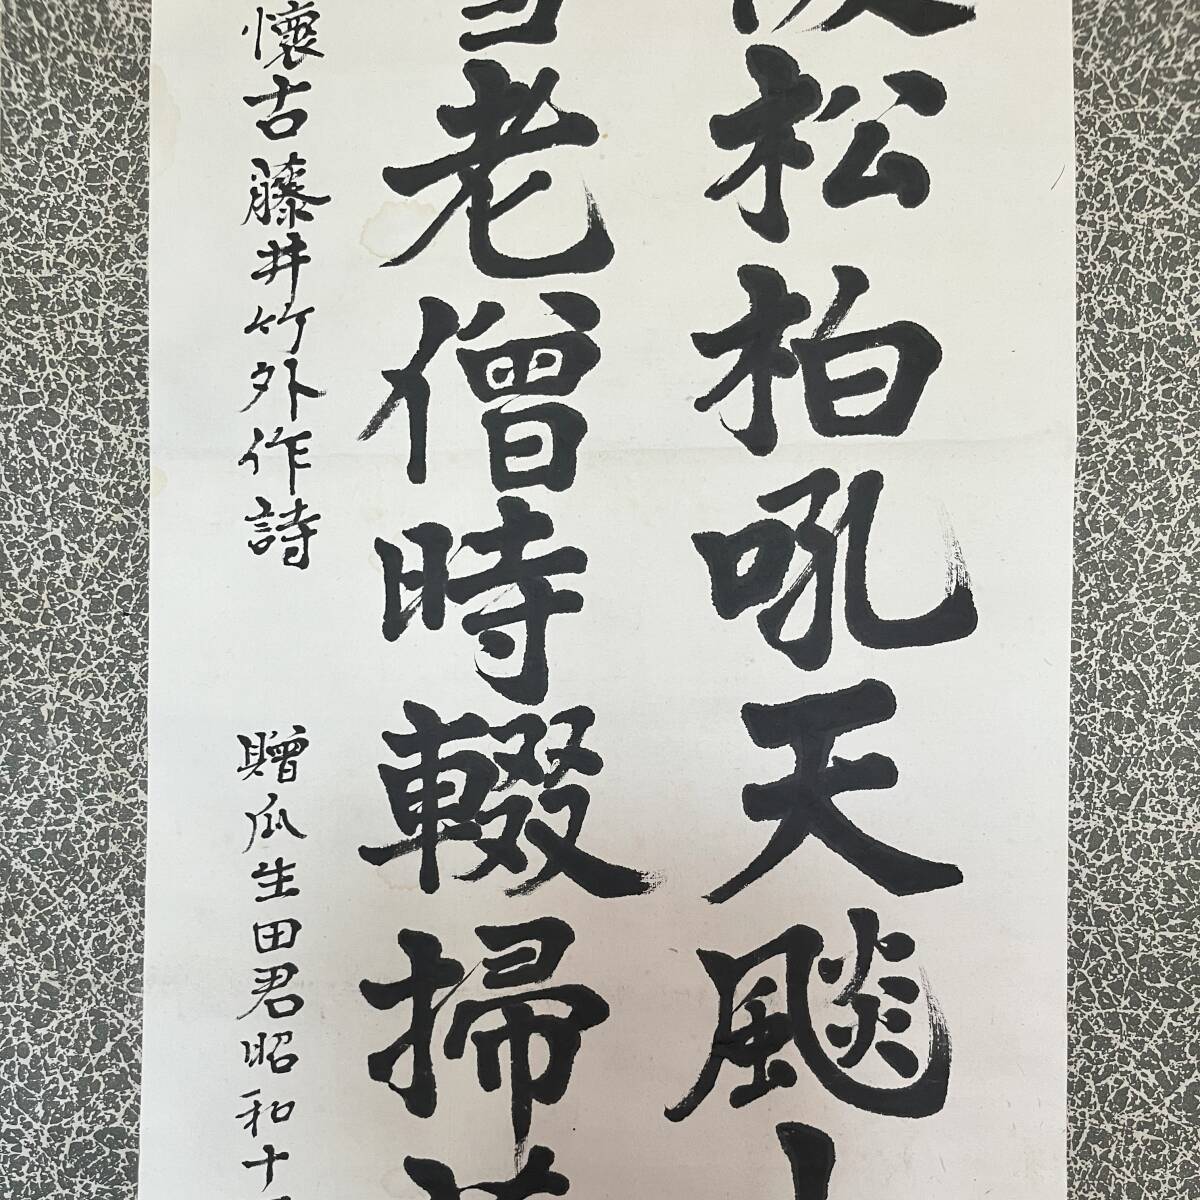 松柏吼天颷
老僧時輟掃
懷古藤井竹外作詩 贈瓜生田君昭和十